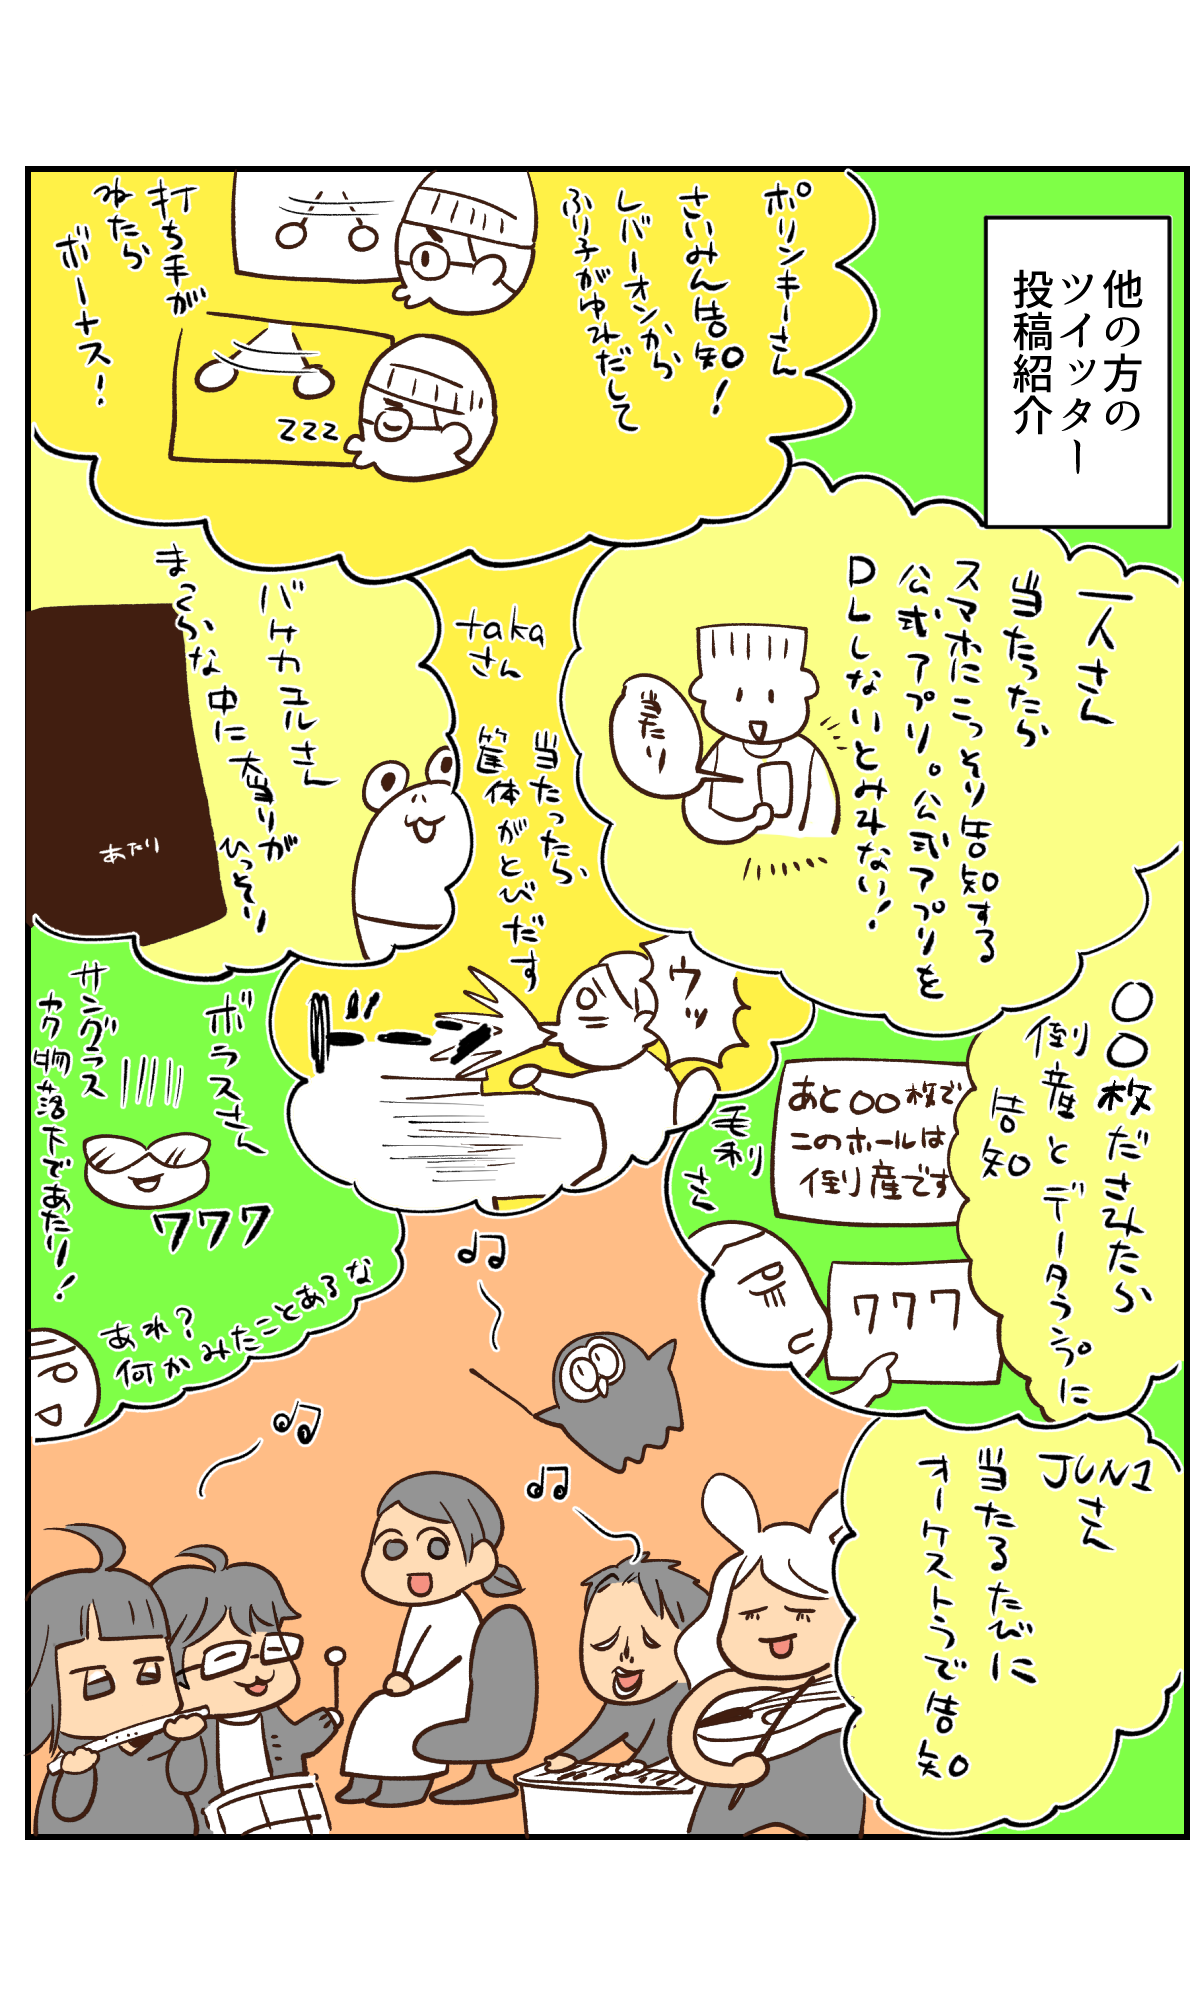 他の方の
ツイッター
投稿紹介
ポリンキーさん
さいみん告知！
レバーオンから
ふり子がゆれだして
打ち手が
ねたら
ボーナス！
zzz
一人さん
当たったら
スマホにこっそり告知する
公式アプリ。公式アプリを
DLしないとみれない！
当たり
takaさん
当たったら
筐体がとびだす
ウッ
ドーーン
バケカエルさん
まっくらな中に大当りが
ひっそり
あたり
〇〇枚だされたら
倒産とデータランプに
告知
毛利さん
あと〇〇枚で
このホールは
倒産です
ワワワ
ボラスさん
サングラス
カク物落下であたり！
ワワワ
あれ？
何かみたことあるな
JUN1さん
当たるたびに
オーケストラで告知